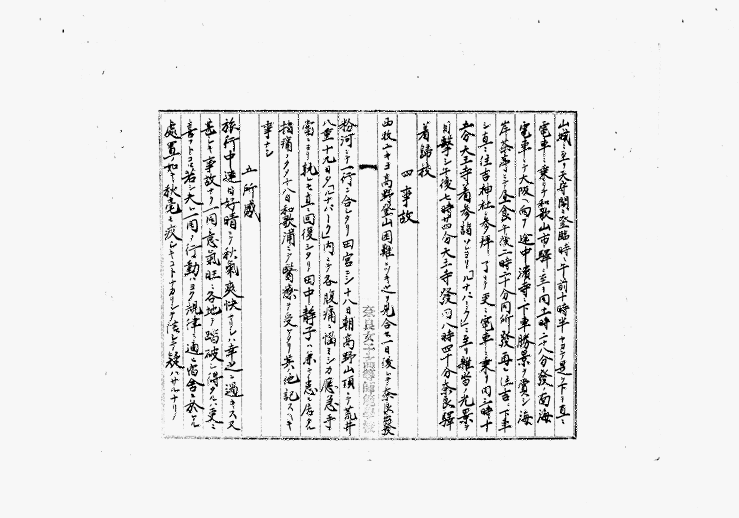 山城ニ至リ天守閣ニ登臨時ニ午前十時半ナリ是ヨリ直ニ
電車ニ乗リテ和歌山市驛ニ至リ同十一時二十八分發ノ南海
電車ニテ大阪ヘ向フ途中濱寺ニ下車勝景ヲ賞シ海
岸茶亭ニテ昼食午後一時二十分同所發再ビ住吉ニ下車
シ直ニ住吉神社ニ参拝了リテ更ニ電車ニ乗リ同三時十
五分天王寺着参詣ソレヨリ「ルナパーク」ニ至リ雑沓ノ光景ヲ
目撃シ午後七時廿四分天王寺發同八時四十分奈良驛
着歸校
四 事故
西牧ユキヨ高野登山困難ニツキ之ヲ見合セ一日後レテ奈良出發
粉河ニテ一行ニ合シタリ田宮ミシ十八日朝高野山頂ニテ荒井
八重十九日夕「ルナパーク」内ニテ各腹痛ニ悩ミシカ應急手
當ニヨリ孰レモ直ニ回復シタリ田中静子ハ
指痛ノタメ十八日和歌浦ニテ醫療ヲ受ケタリ其ノ他記スヘキ
事ナシ
五 所感
旅行中連日好晴ニテ秋氣爽快ナリシハ幸之ニ過キス又
甚シキ事故ナク一同ノ意氣旺ニ各地ヲ踏破シ得タルハ更ニ
喜フトコロ若シ夫レ一同ノ行動ノヨク規律ニ適ヒ宿舎ニ於ケル
處置ノ如キ秋毫モ疚シキコトナカリシハ
奈良女子高等師範學校